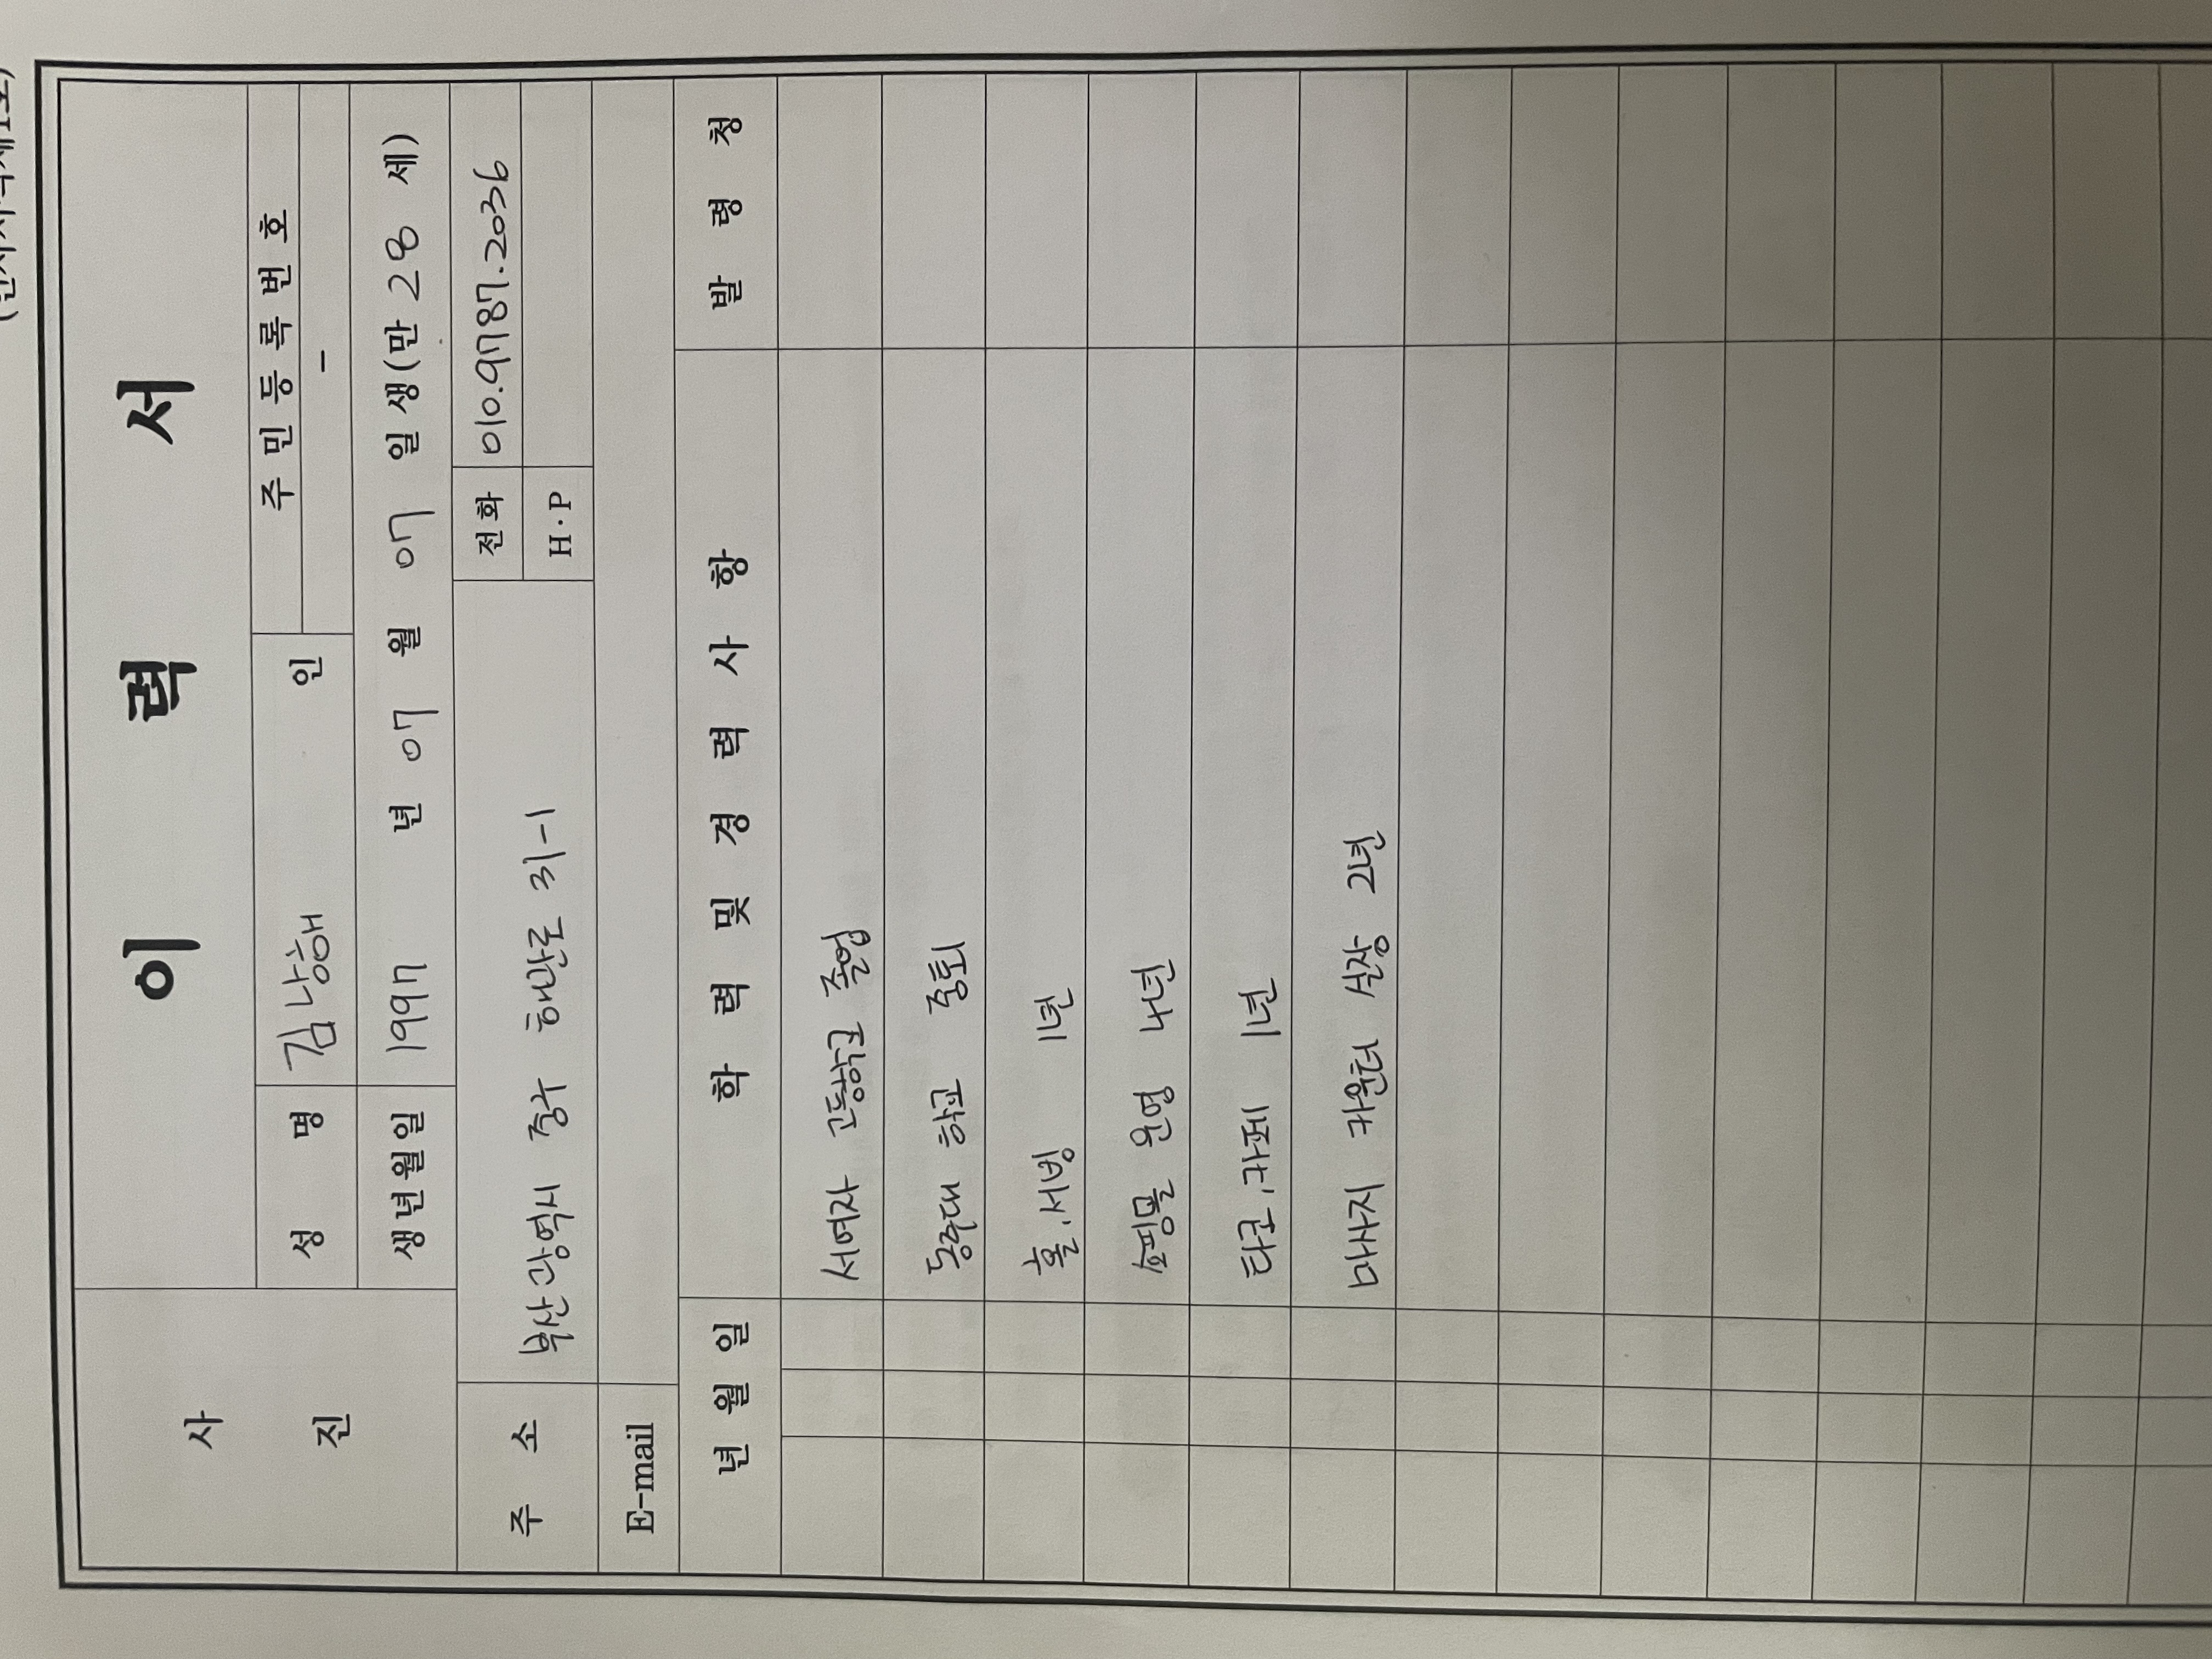 이 력 서
사 진
성 명 김낭해 인
주 민 등 록 번 호
-
생년월일 1997 년 07 월 07 일생(만 28 세)
주 소 부산광역시 중구 해관로 31-1
전화 010.9787.2036
H·P
E-mail
년 월 일 학 력 및 경 력 사 항 발 령 청
서여자 고등학교 졸업
동주대 학교 중퇴
홀.서빙 1년
쇼핑몰 운영 4년
타코,카페 1년
마사지 카운터 실장 2년